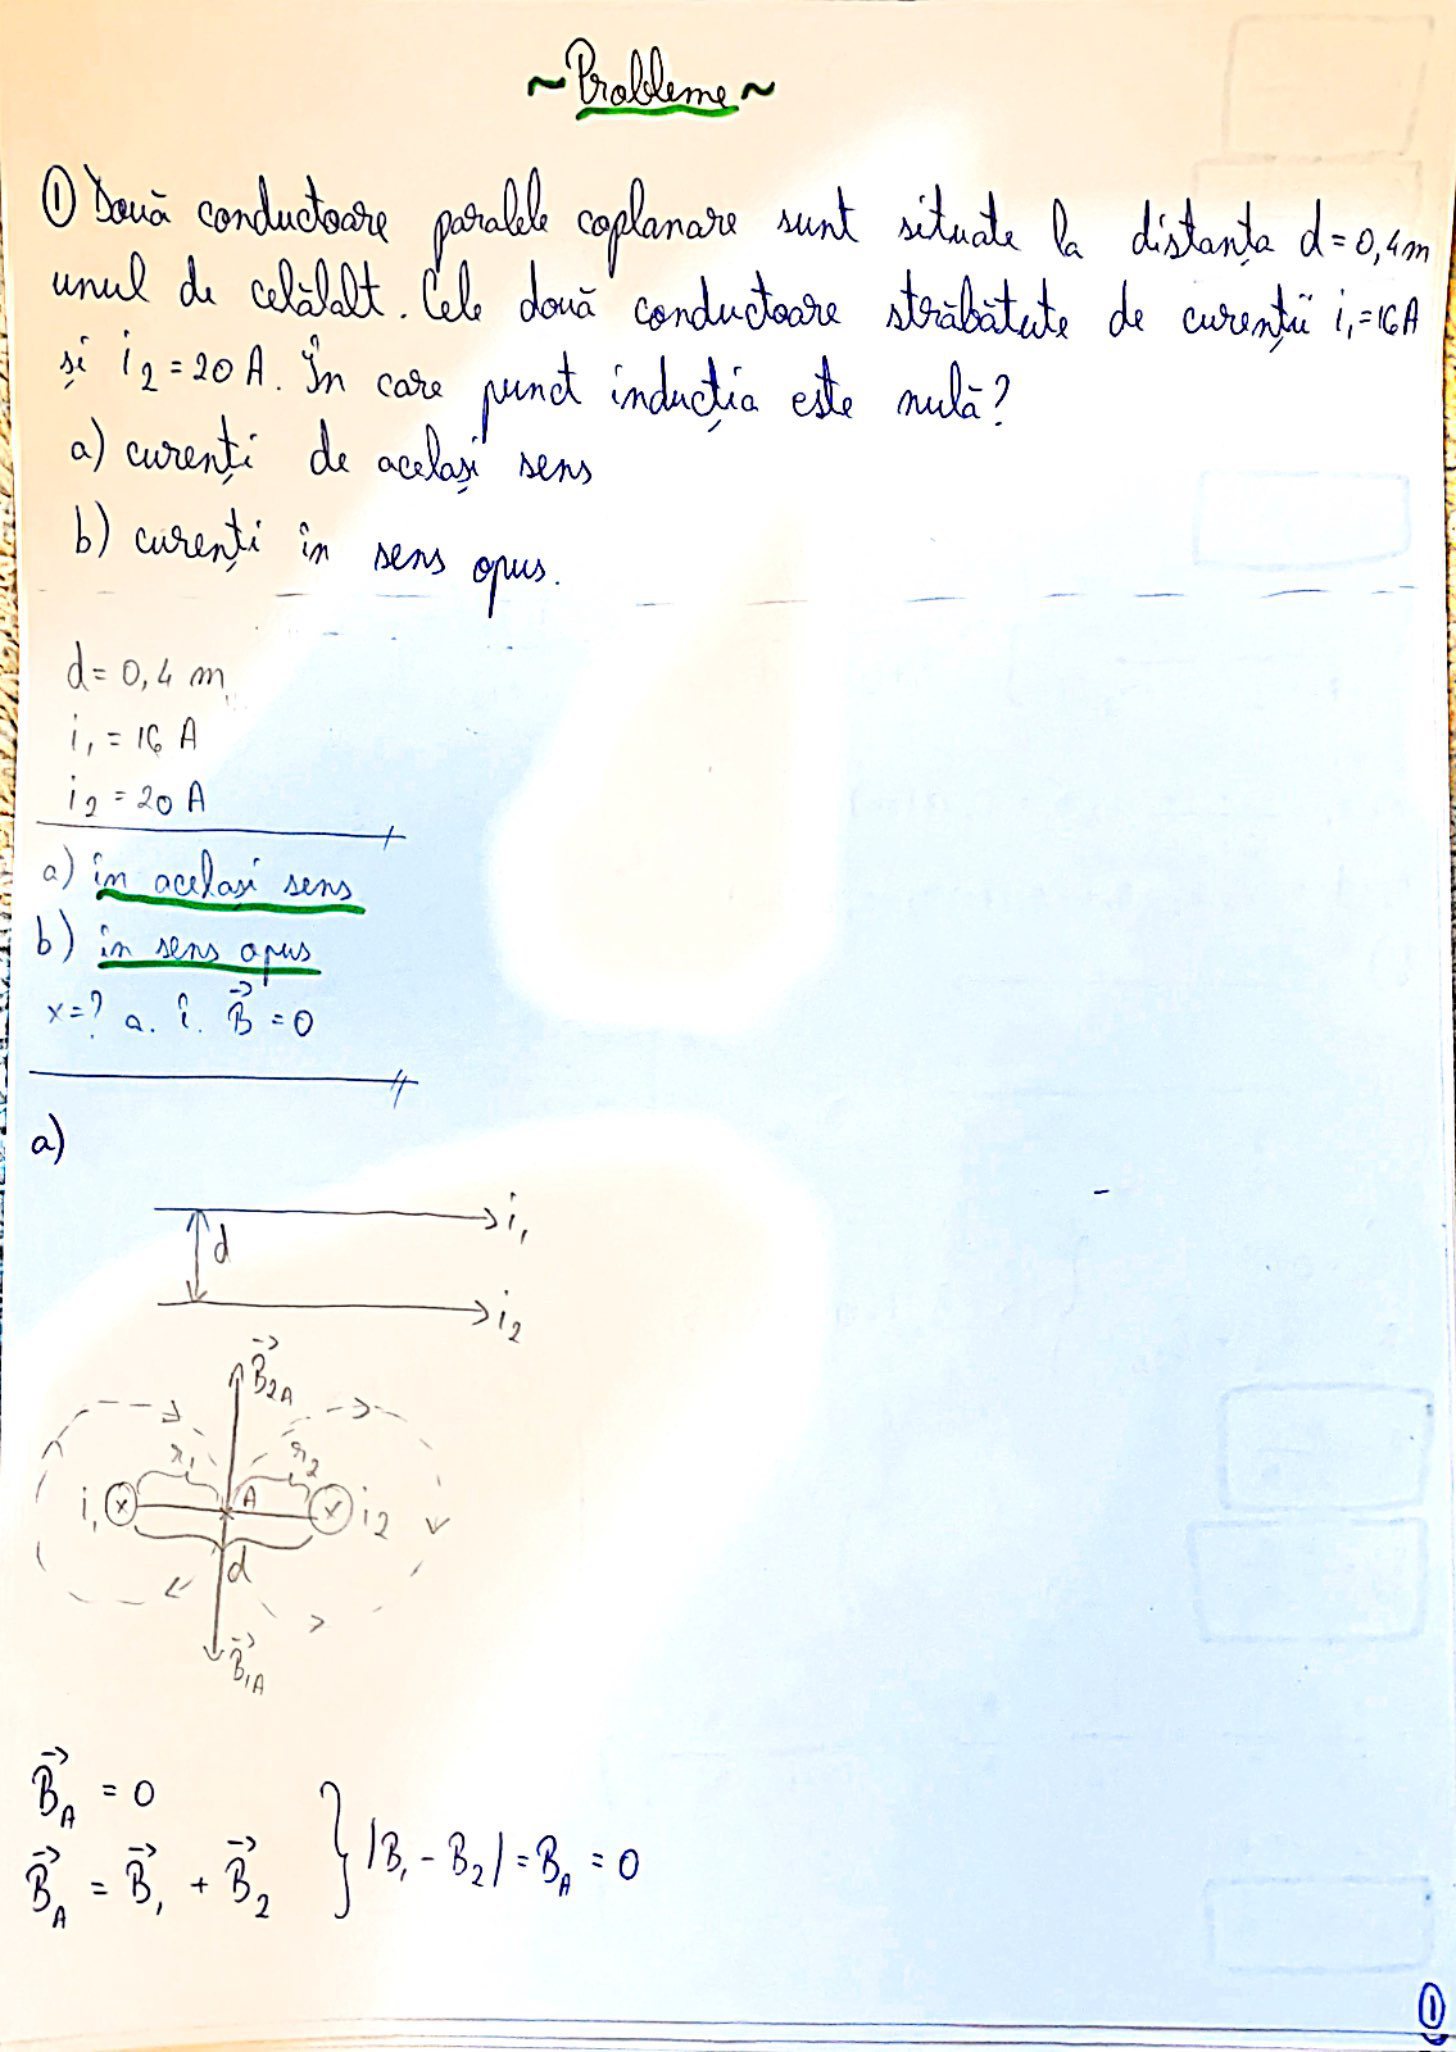 ~Probleme~
① Două conductoare paralele coplanare sunt situate la distanța d=0,4m
unul de celălalt. Cele două conductoare străbătute de curenții i₁=16A
și i₂=20A. În care punct inducția este nulă?
a) curenți de același sens
b) curenți în sens opus.
d=0,4 m
i₁=16 A
i₂=20 A
a) în același sens
b) în sens opus
x=? a. î. B⃗=0
a)
i₁
d
i₂
B⃗₂A
r₁ r₂
i₁ x A x i₂
d
B⃗₁A
B⃗A = 0
B⃗A = B⃗₁ + B⃗₂ } |B₁ - B₂| = BA = 0
①